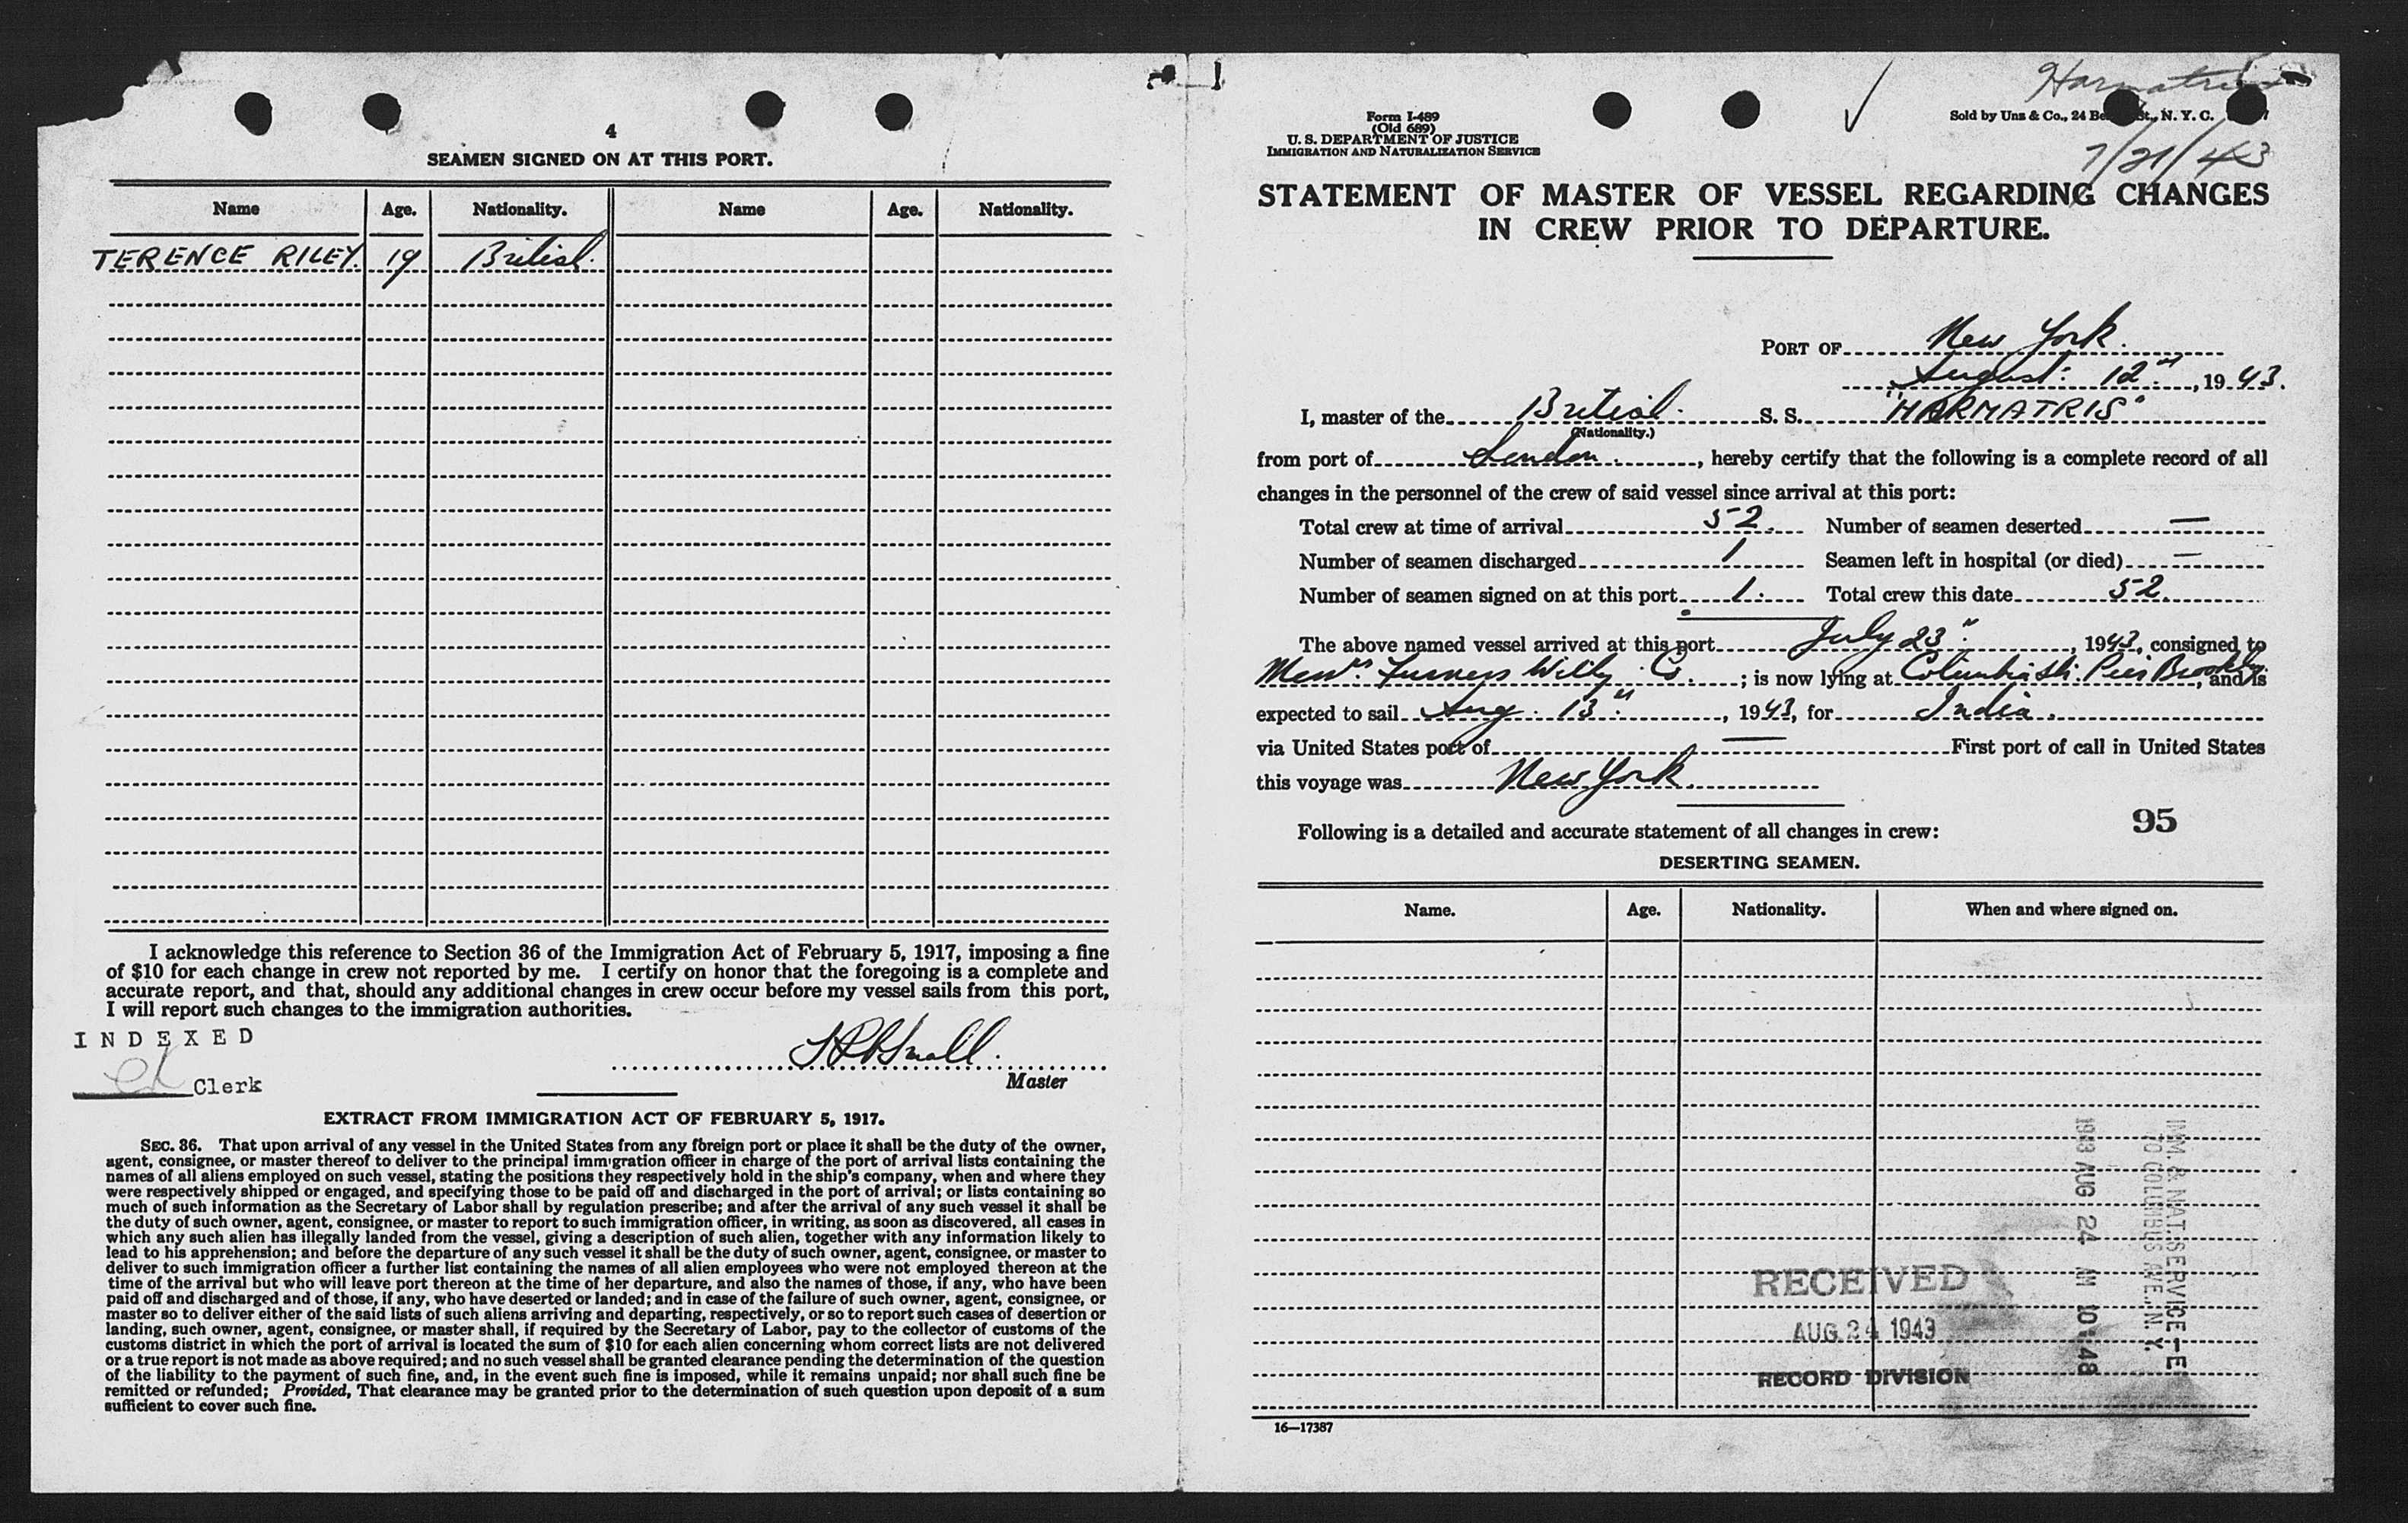 4
SEAMEN SIGNED ON AT THIS PORT.
Name Age. Nationality. Name Age. Nationality.
TERENCE RILEY. 19 British.
I acknowledge this reference to Section 36 of the Immigration Act of February 5, 1917, imposing a fine
of $10 for each change in crew not reported by me. I certify on honor that the foregoing is a complete and
accurate report, and that, should any additional changes in crew occur before my vessel sails from this port,
I will report such changes to the immigration authorities.
INDEXED
Clerk
Master
EXTRACT FROM IMMIGRATION ACT OF FEBRUARY 5, 1917.
SEC. 36. That upon arrival of any vessel in the United States from any foreign port or place it shall be the duty of the owner,
agent, consignee, or master thereof to deliver to the principal immigration officer in charge of the port of arrival lists containing the
names of all aliens employed on such vessel, stating the positions they respectively hold in the ship's company, when and where they
were respectively shipped or engaged, and specifying those to be paid off and discharged in the port of arrival; or lists containing so
much of such information as the Secretary of Labor shall by regulation prescribe; and after the arrival of any such vessel it shall be
the duty of such owner, agent, consignee, or master to report to such immigration officer, in writing, as soon as discovered, all cases in
which any such alien has illegally landed from the vessel, giving a description of such alien, together with any information likely to
lead to his apprehension; and before the departure of any such vessel it shall be the duty of such owner, agent, consignee, or master to
deliver to such immigration officer a further list containing the names of all alien employees who were not employed thereon at the
time of the arrival but who will leave port thereon at the time of her departure, and also the names of those, if any, who have been
paid off and discharged and of those, if any, who have deserted or landed; and in case of the failure of such owner, agent, consignee, or
master so to deliver either of the said lists of such aliens arriving and departing, respectively, or so to report such cases of desertion or
landing, such owner, agent, consignee, or master shall, if required by the Secretary of Labor, pay to the collector of customs of the
customs district in which the port of arrival is located the sum of $10 for each alien concerning whom correct lists are not delivered
or a true report is not made as above required; and no such vessel shall be granted clearance pending the determination of the question
of the liability to the payment of such fine, and, in the event such fine is imposed, while it remains unpaid; nor shall such fine be
remitted or refunded; Provided, That clearance may be granted prior to the determination of such question upon deposit of a sum
sufficient to cover such fine.
Harmatris
Form I-489
(Old 689)
U. S. DEPARTMENT OF JUSTICE
IMMIGRATION AND NATURALIZATION SERVICE
Sold by Uns & Co., 24 N. Y. C.
7/21/43
STATEMENT OF MASTER OF VESSEL REGARDING CHANGES
IN CREW PRIOR TO DEPARTURE.
PORT OF New York.
August 12th, 1943.
I, master of the British S. S. "HARMATRIS"
(Nationality.)
from port of London, hereby certify that the following is a complete record of all
changes in the personnel of the crew of said vessel since arrival at this port:
Total crew at time of arrival 52. Number of seamen deserted —
Number of seamen discharged 1 Seamen left in hospital (or died) —
Number of seamen signed on at this port 1. Total crew this date 52.
The above named vessel arrived at this port July 23", 1943, consigned to
Messrs. Furness Withy Co.; is now lying at Columbia St. Pier Brooklyn, and is
expected to sail Aug. 13", 1943, for India.
via United States port of — First port of call in United States
this voyage was New York.
95
Following is a detailed and accurate statement of all changes in crew:
DESERTING SEAMEN.
Name. Age. Nationality. When and where signed on.
RECEIVED
AUG 24 1943
RECORD DIVISION
1943 AUG 24 AM 10:48
IMM. & NAT. SERVICE-E
70 COLUMBUS AVE., N.Y.
16—17387